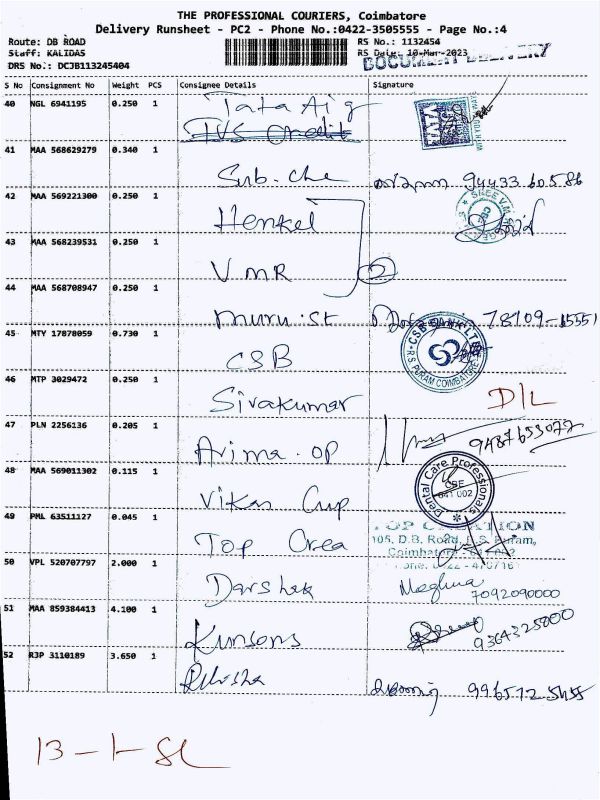 THE PROFESSIONAL COURIERS, Coimbatore
Delivery Runsheet - PC2 - Phone No.:0422-3505555 - Page No.:4
Route: DB ROAD
RS No.: 1132454
Staff: KALIDAS
RS Date: 10-Mar-2023
DRS No.: DCJB113245404
DOCUMENT DELIVERY
S No Consignment No Weight PCS Consignee Details Signature
40 NGL 6941195 0.250 1 Tata Aig
TVS Credit
41 MAA 568629279 0.340 1
Sub. Che 94433 60586
42 MAA 569221300 0.250 1 Henkel
43 MAA 568239531 0.250 1 VMR 2
44 MAA 568708947 0.250 1
muru.st 78109-15551
45 MTY 17878059 0.730 1 CSB
CSB BANK LTD R.S PURAM COIMBATORE
46 MTP 3029472 0.250 1 Sivakumar D/L
47 PLN 2256136 0.205 1 Arima.op 9487653077
48 MAA 569011302 0.115 1 Vikas Cup
Dental Care Professionals CBE 641 002
49 PML 63511127 0.045 1 Top Crea
TOP CREATION
105, D.B. Road, R.S. Puram,
Coimbatore - 641 002
50 VPL 520707797 2.000 1 Darshak Meghna
7092090000
51 MAA 859384413 4.100 1 Kunsons 9364325800
52 RJP 3110189 3.650 1
99657 12 5455
13-1-SL